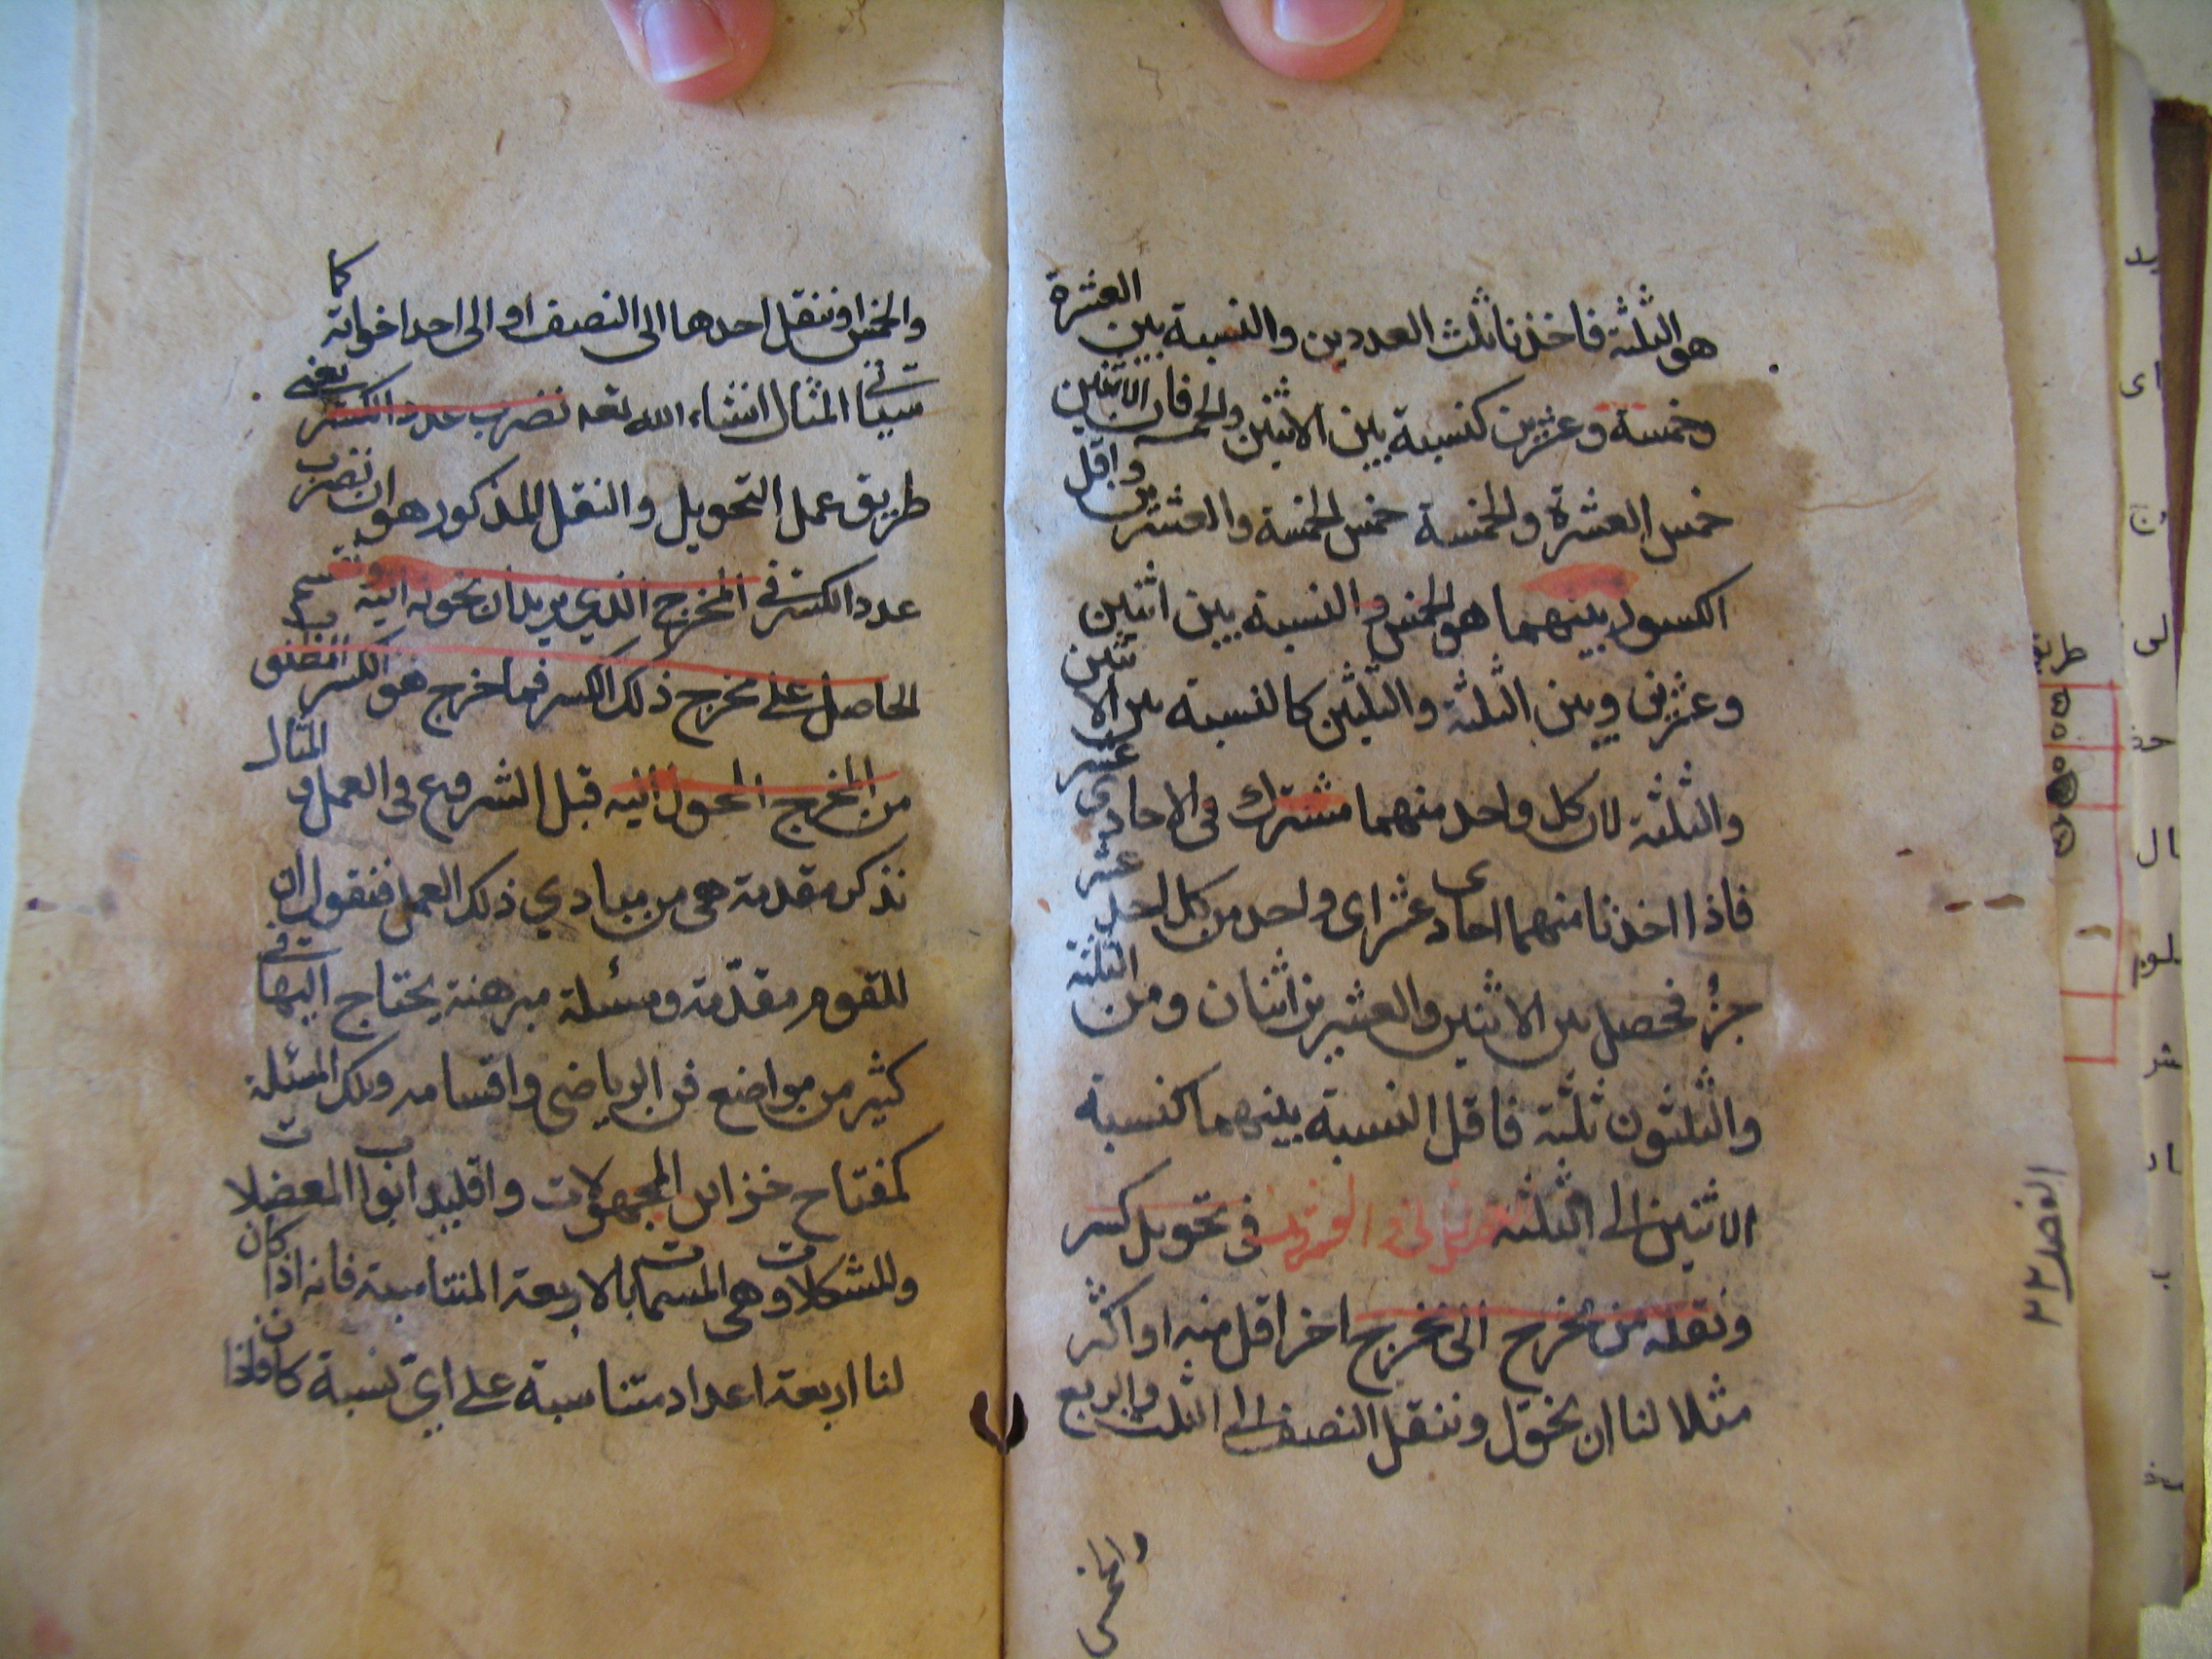 هو الثلثة فاخذنا ثلث العددين والنسبة بين العشرة
وخمسة وعشرين كنسبة بين الاثنين والخمسه فان الاثنين
خمس العشرة والخمسة خمس الخمسة والعشرين واقل
الكسور بينهما هو الخمس والنسبة بين اثنين
وعشرين وبين الثلثة والثلثين كالنسبة بين الاثنين
والثلثة لان كل واحد منهما مشترك فى الاحادى عشر
فاذا اخذنا منهما احادى عشر اى واحد من كل احد عشر
جزء فحصل من الاثنين والعشرين اثنان ومن الثلثة
والثلثون ثلثة فاقل النسبة بينهما كنسبة
الاثنين الى الثلثة فى تحويل كسر
ونقله من مخرج الى مخرج اخر اقل منه او اكثر
مثلا لنا ان نحوّل وننقل النصف الى الثلث والربع
والخمس
والخمس او ننقل احدها الى النصف او الى احد اخواته كما
سيأتى المثال انشاء الله تعه نضرب عدد الكسر يعنى
طريق عمل التحويل والنقل المذكور هو ان نضرب
عدد الكسر فى المخرج الذي يريد ان نحوله اليه ونقسم
الحاصل على مخرج ذلك الكسر فما خرج هو الكسر المطلوب
من المخرج المحول اليه قبل الشروع فى العمل و المثال
نذكر مقدمة هى من مبادي ذلك العمل فنقول ان
للقوم مقدّمة ومسئلة مبرهنة يحتاج اليها فى
كثير من مواضع فن الرياضى واقسامه وتلك المسئلة
كمفتاح خزاين المجهولات واقليد ابواب المعضلات
والمشكلات وهى المسمات بالاربعة المتناسبة فانه اذا كان
لنا اربعة اعداد متناسبة على اي نسبة كان